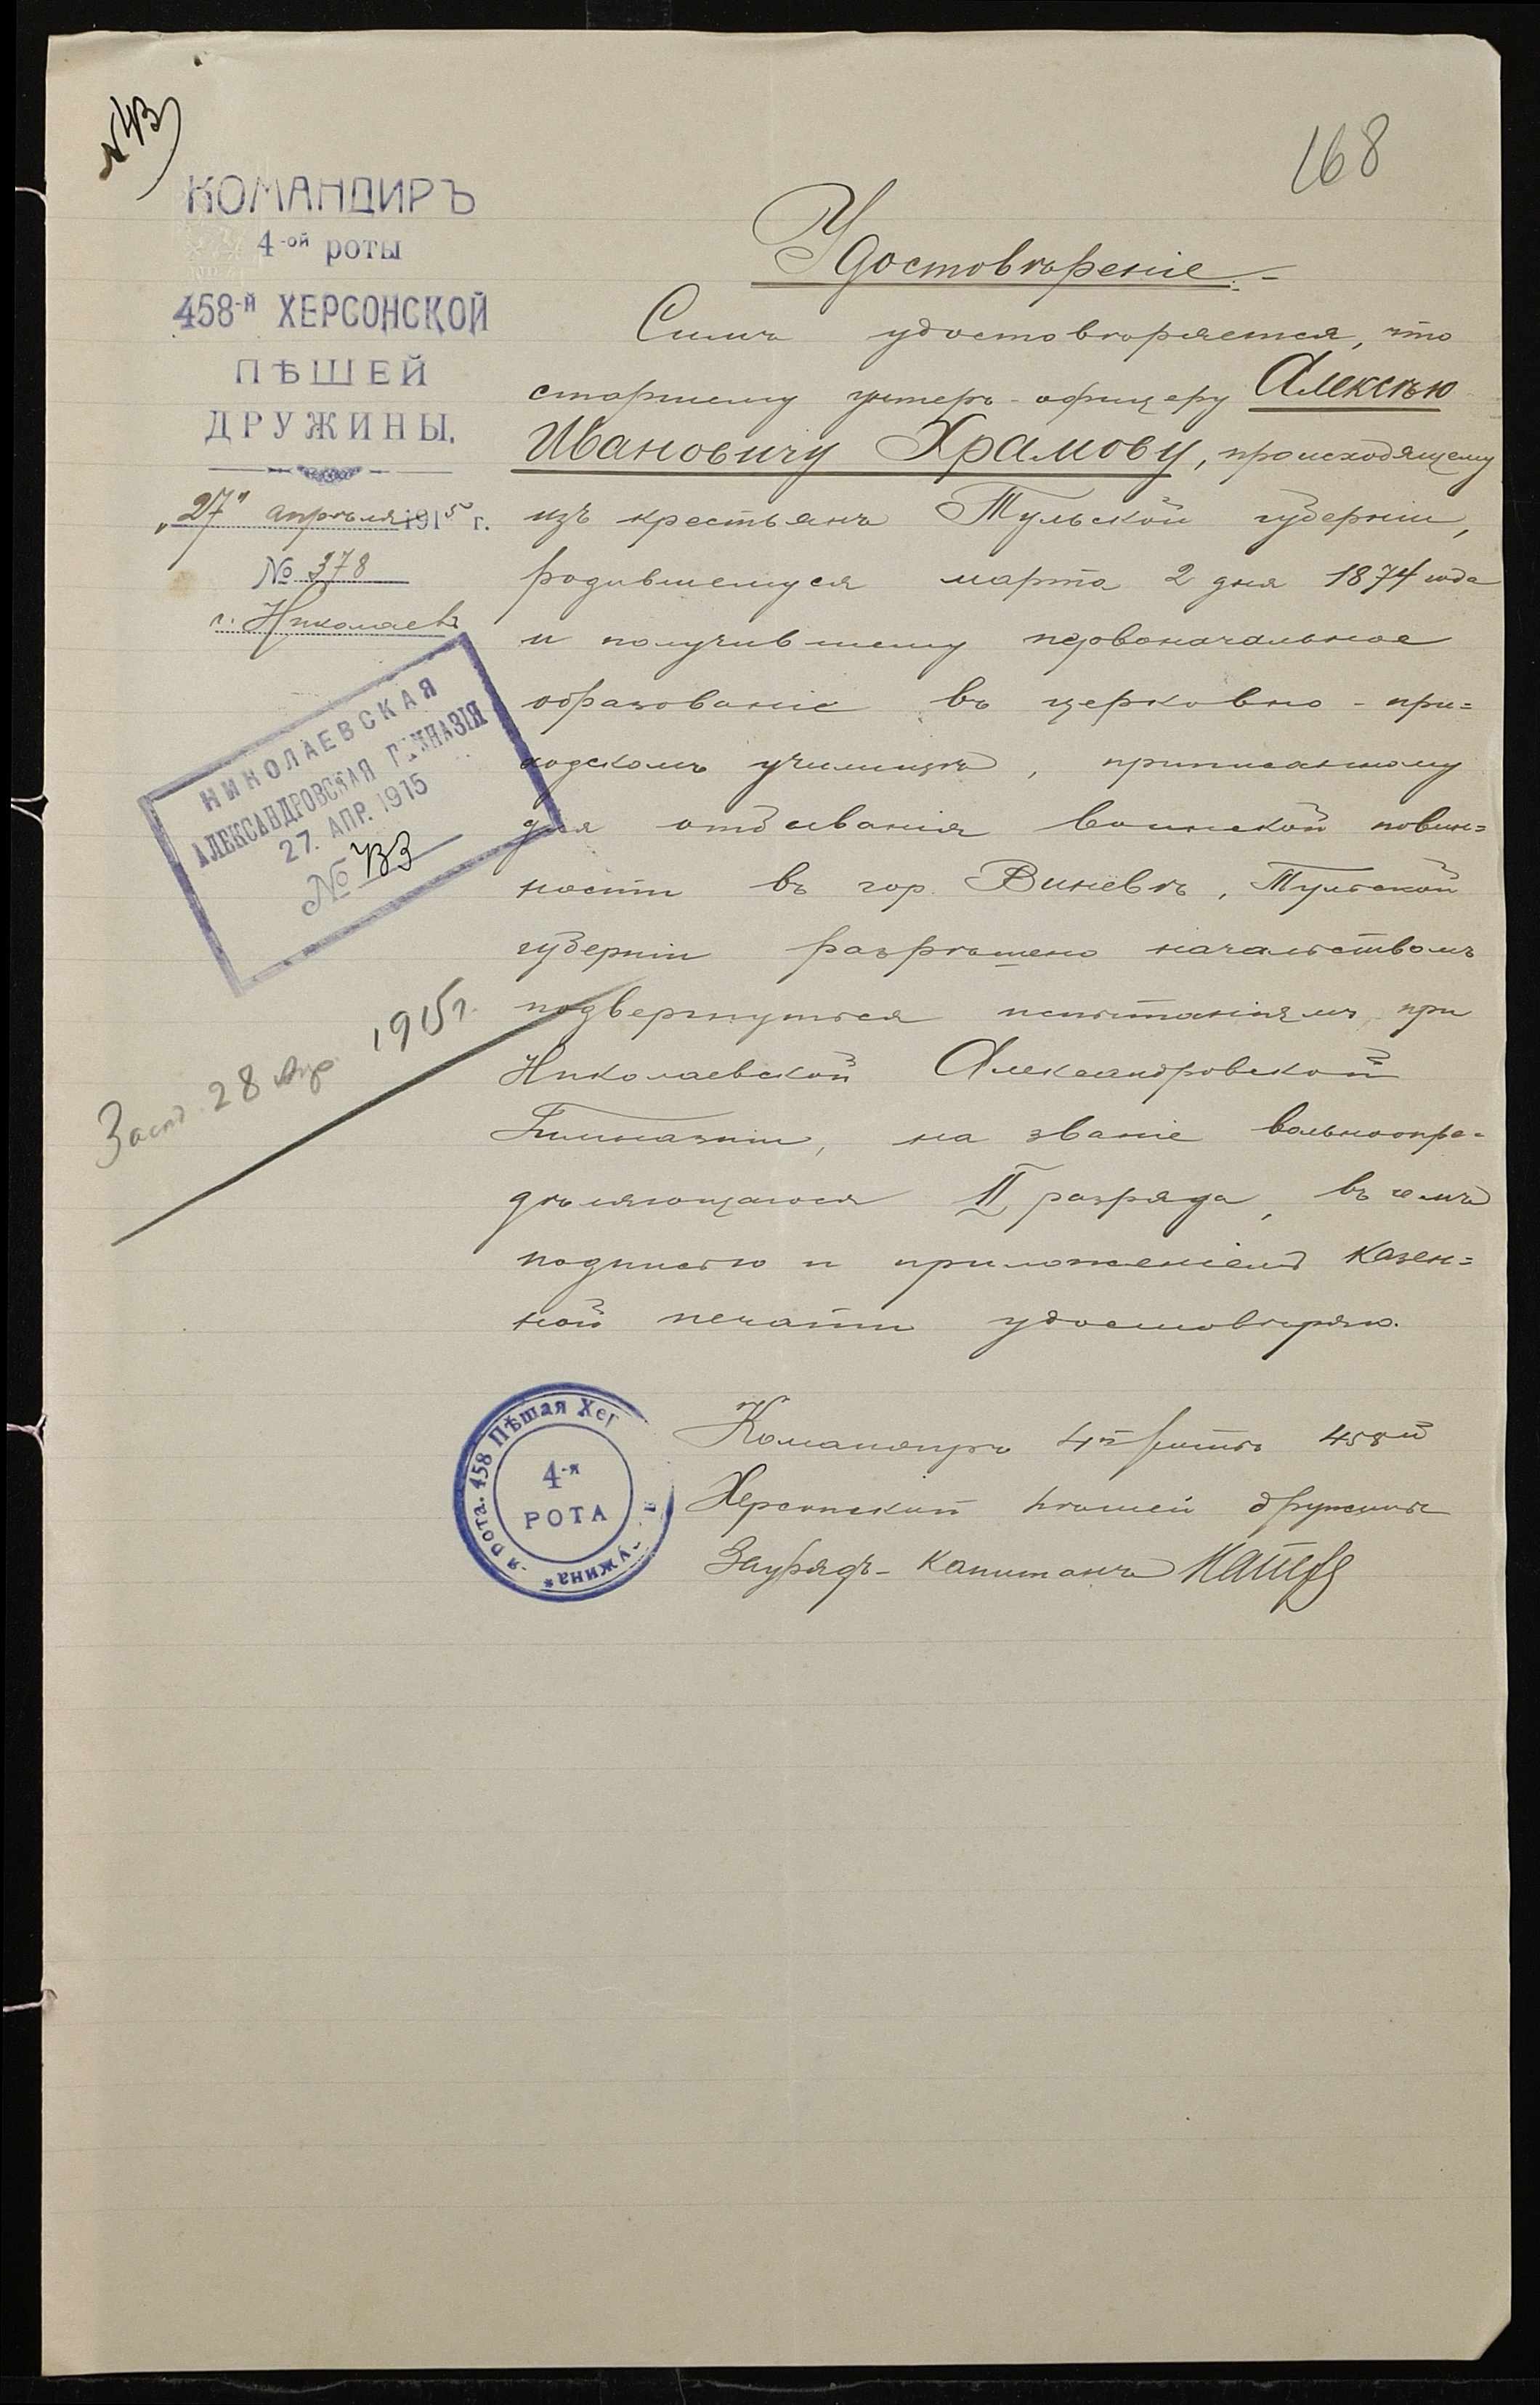 168
КОМАНДИРЪ
4-ой роты
458-й ХЕРСОНСКОЙ
ПѢШЕЙ
ДРУЖИНЫ.
„27" апрѣля 1915 г.
№ 378
г. Николаевъ
НИКОЛАЕВСКАЯ
АЛЕКСАНДРОВСКАЯ ГИМНАЗІЯ
27. АПР. 1915
№ 433
28 Апр. 1915 г.
Удостовѣреніе.
Симъ удостовѣряется, что
старшему унтеръ-офицеру Алексѣю
Ивановичу Храмову, происходящему
изъ крестьянъ Тульской губерніи,
родившемуся марта 2 дня 1874 года
и получившему первоначальное
образованіе въ церковно-при=
ходскомъ училищѣ, приписанному
для отбыванія воинской повин=
ности въ гор. Виневѣ, Тульской
губерніи разрѣшено начальствомъ
подвергнуться испытаніямъ при
Николаевской Александровской
Гимназіи, на званіе вольноопре-
дѣляющагося II разряда, въ чемъ
подписью и приложеніемъ казен=
ной печати удостовѣряю.
Командиръ 4й роты 458й
Херсонской пѣшей дружины
Заурядъ-капитанъ
4-я РОТА
я рота. 458 Пѣшая Хер
ужина*